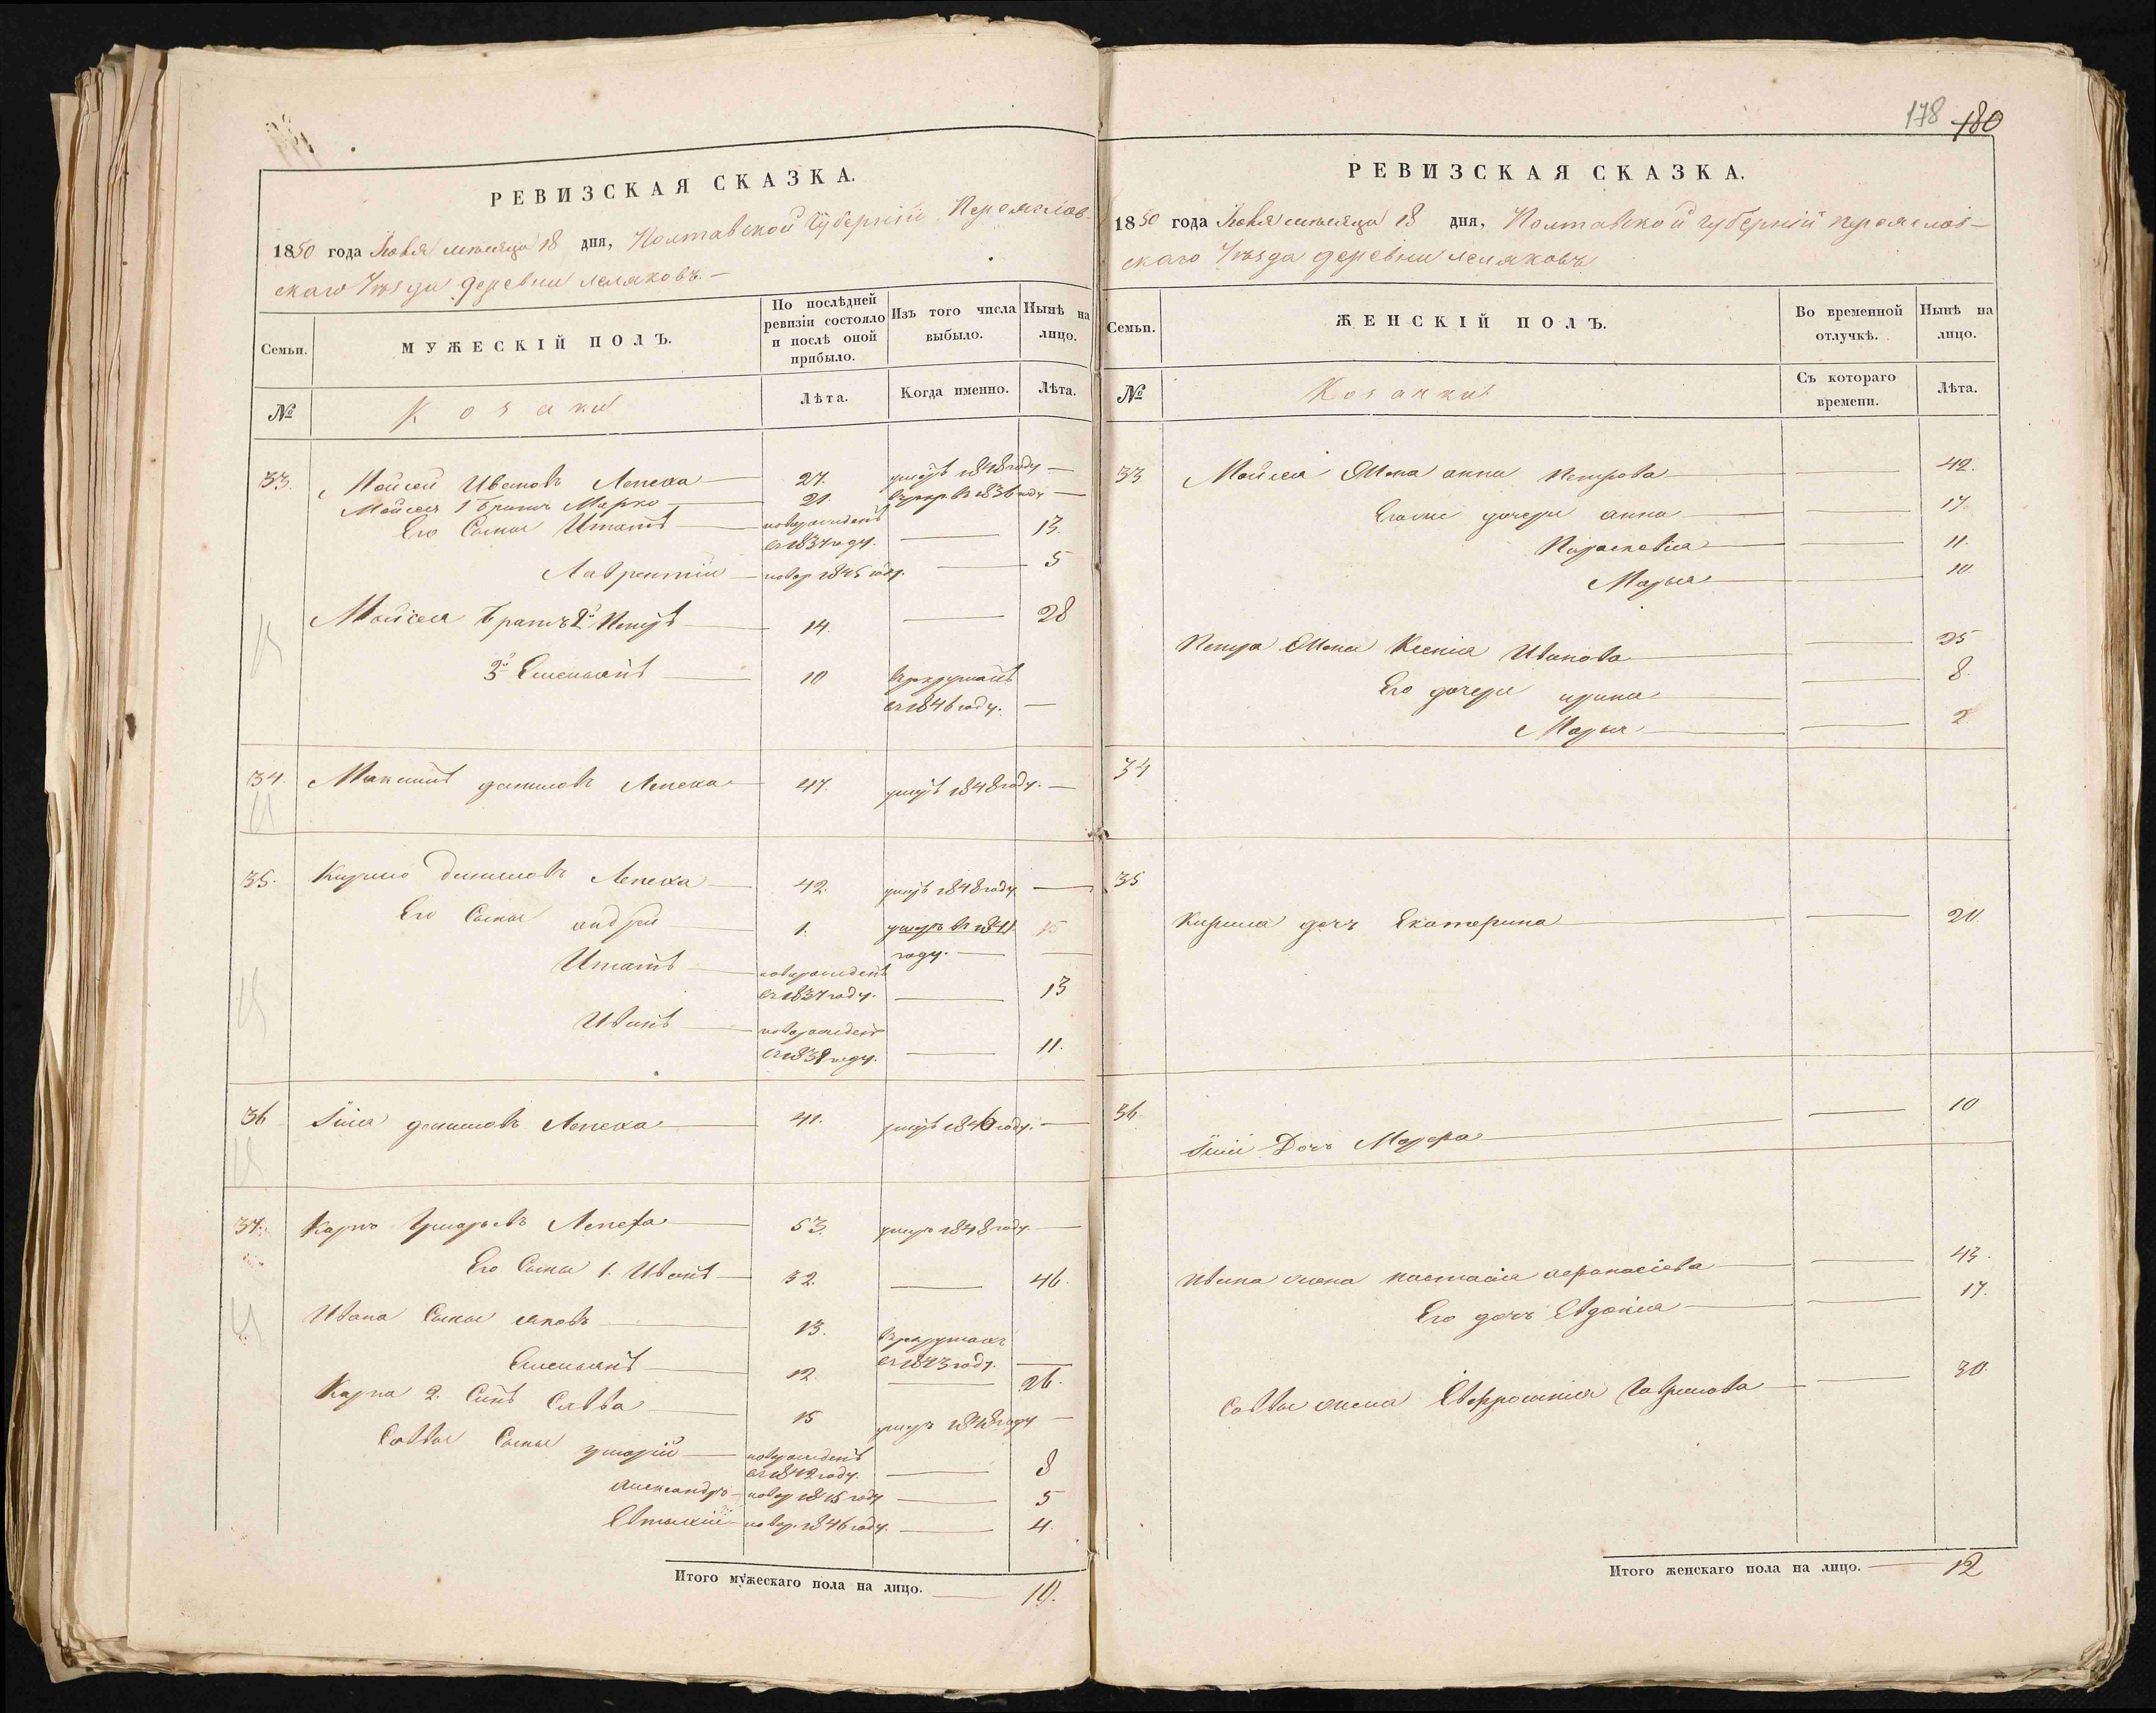 РЕВИЗСКАЯ СКАЗКА.
1850 года Ноября месяца 18 дня, Полтавской Губерніи Переяслов-
скаго Уѣзда деревни
Семьи.
МУЖЕСКІЙ ПОЛЪ.
По послѣдней ревизіи состояло и послѣ оной прибыло.
Изъ того числа выбыло.
Нынѣ на лицо.
№
Козаки
Лѣта.
Когда именно.
Лѣта.
33. Мойсей Ивановъ Лепеха 27. умеръ 1848 году
Мойсея 1 братъ Марко 21. в рекр. въ 1836 году
Его Сынъ Игнатъ новорожденъ 13.
въ 1837 году.
Лаврентій новор. 1845 году. 5
Мойсея братъ 2й Петръ 14. 28
3й Емельянъ 10 в рекрутахъ
съ 1846 году.
34. Максимъ Даниловъ Лепеха 47. умеръ 1848 году.
35. Кирило Даниловъ Лепеха 42. умеръ 1848 году
Его Сынъ андрей 1. умеръ въ 1841 15
году.
Игнатъ новорожденъ
въ 1837 году. 13
Иванъ новорожденъ
въ 1839 году. 11.
36 Даниловъ Лепеха 41. умеръ 1846 году.
37. Карпъ Григорьевъ Лепеха 53. умеръ 1848 году.
Его Сынъ 1. Иванъ 32. 46.
Ивана Сынъ яковъ 13. в рекрутахъ
съ 1843 году.
Емельянъ 12 26.
Карпа 2. Сынъ Савва 15 умеръ 1848 году
Саввы Сынъ григорій новорожденъ
въ 1842 году. 8
александръ новор 1845 году 5
Евтихій новор. 1846 году. 4.
Итого мужескаго пола на лицо. 10.
178 180
РЕВИЗСКАЯ СКАЗКА.
1850 года Ноября месяца 18 дня, Полтавской Губерніи Переяслов-
скаго Уѣзда деревни
Семьи.
ЖЕНСКІЙ ПОЛЪ.
Во временной отлучкѣ.
Нынѣ на лицо.
№
Козачки
Съ котораго времени.
Лѣта.
33 Мойсея Жена анна Петрова 42.
дочери анна 17
Параскевія 11.
Марья 10.
Петра Жена Ксенія Иванова 25
Его дочери ирина 8.
Марья 2
34
35
Кирила дочь Екатерина 20.
36. 10
Дочь Марфа
Ивана жена настасія афанасіева 43.
Его дочь Евдокія 17.
Саввы жена Евфросинія Гаврилова 30
Итого женскаго пола на лицо. 12